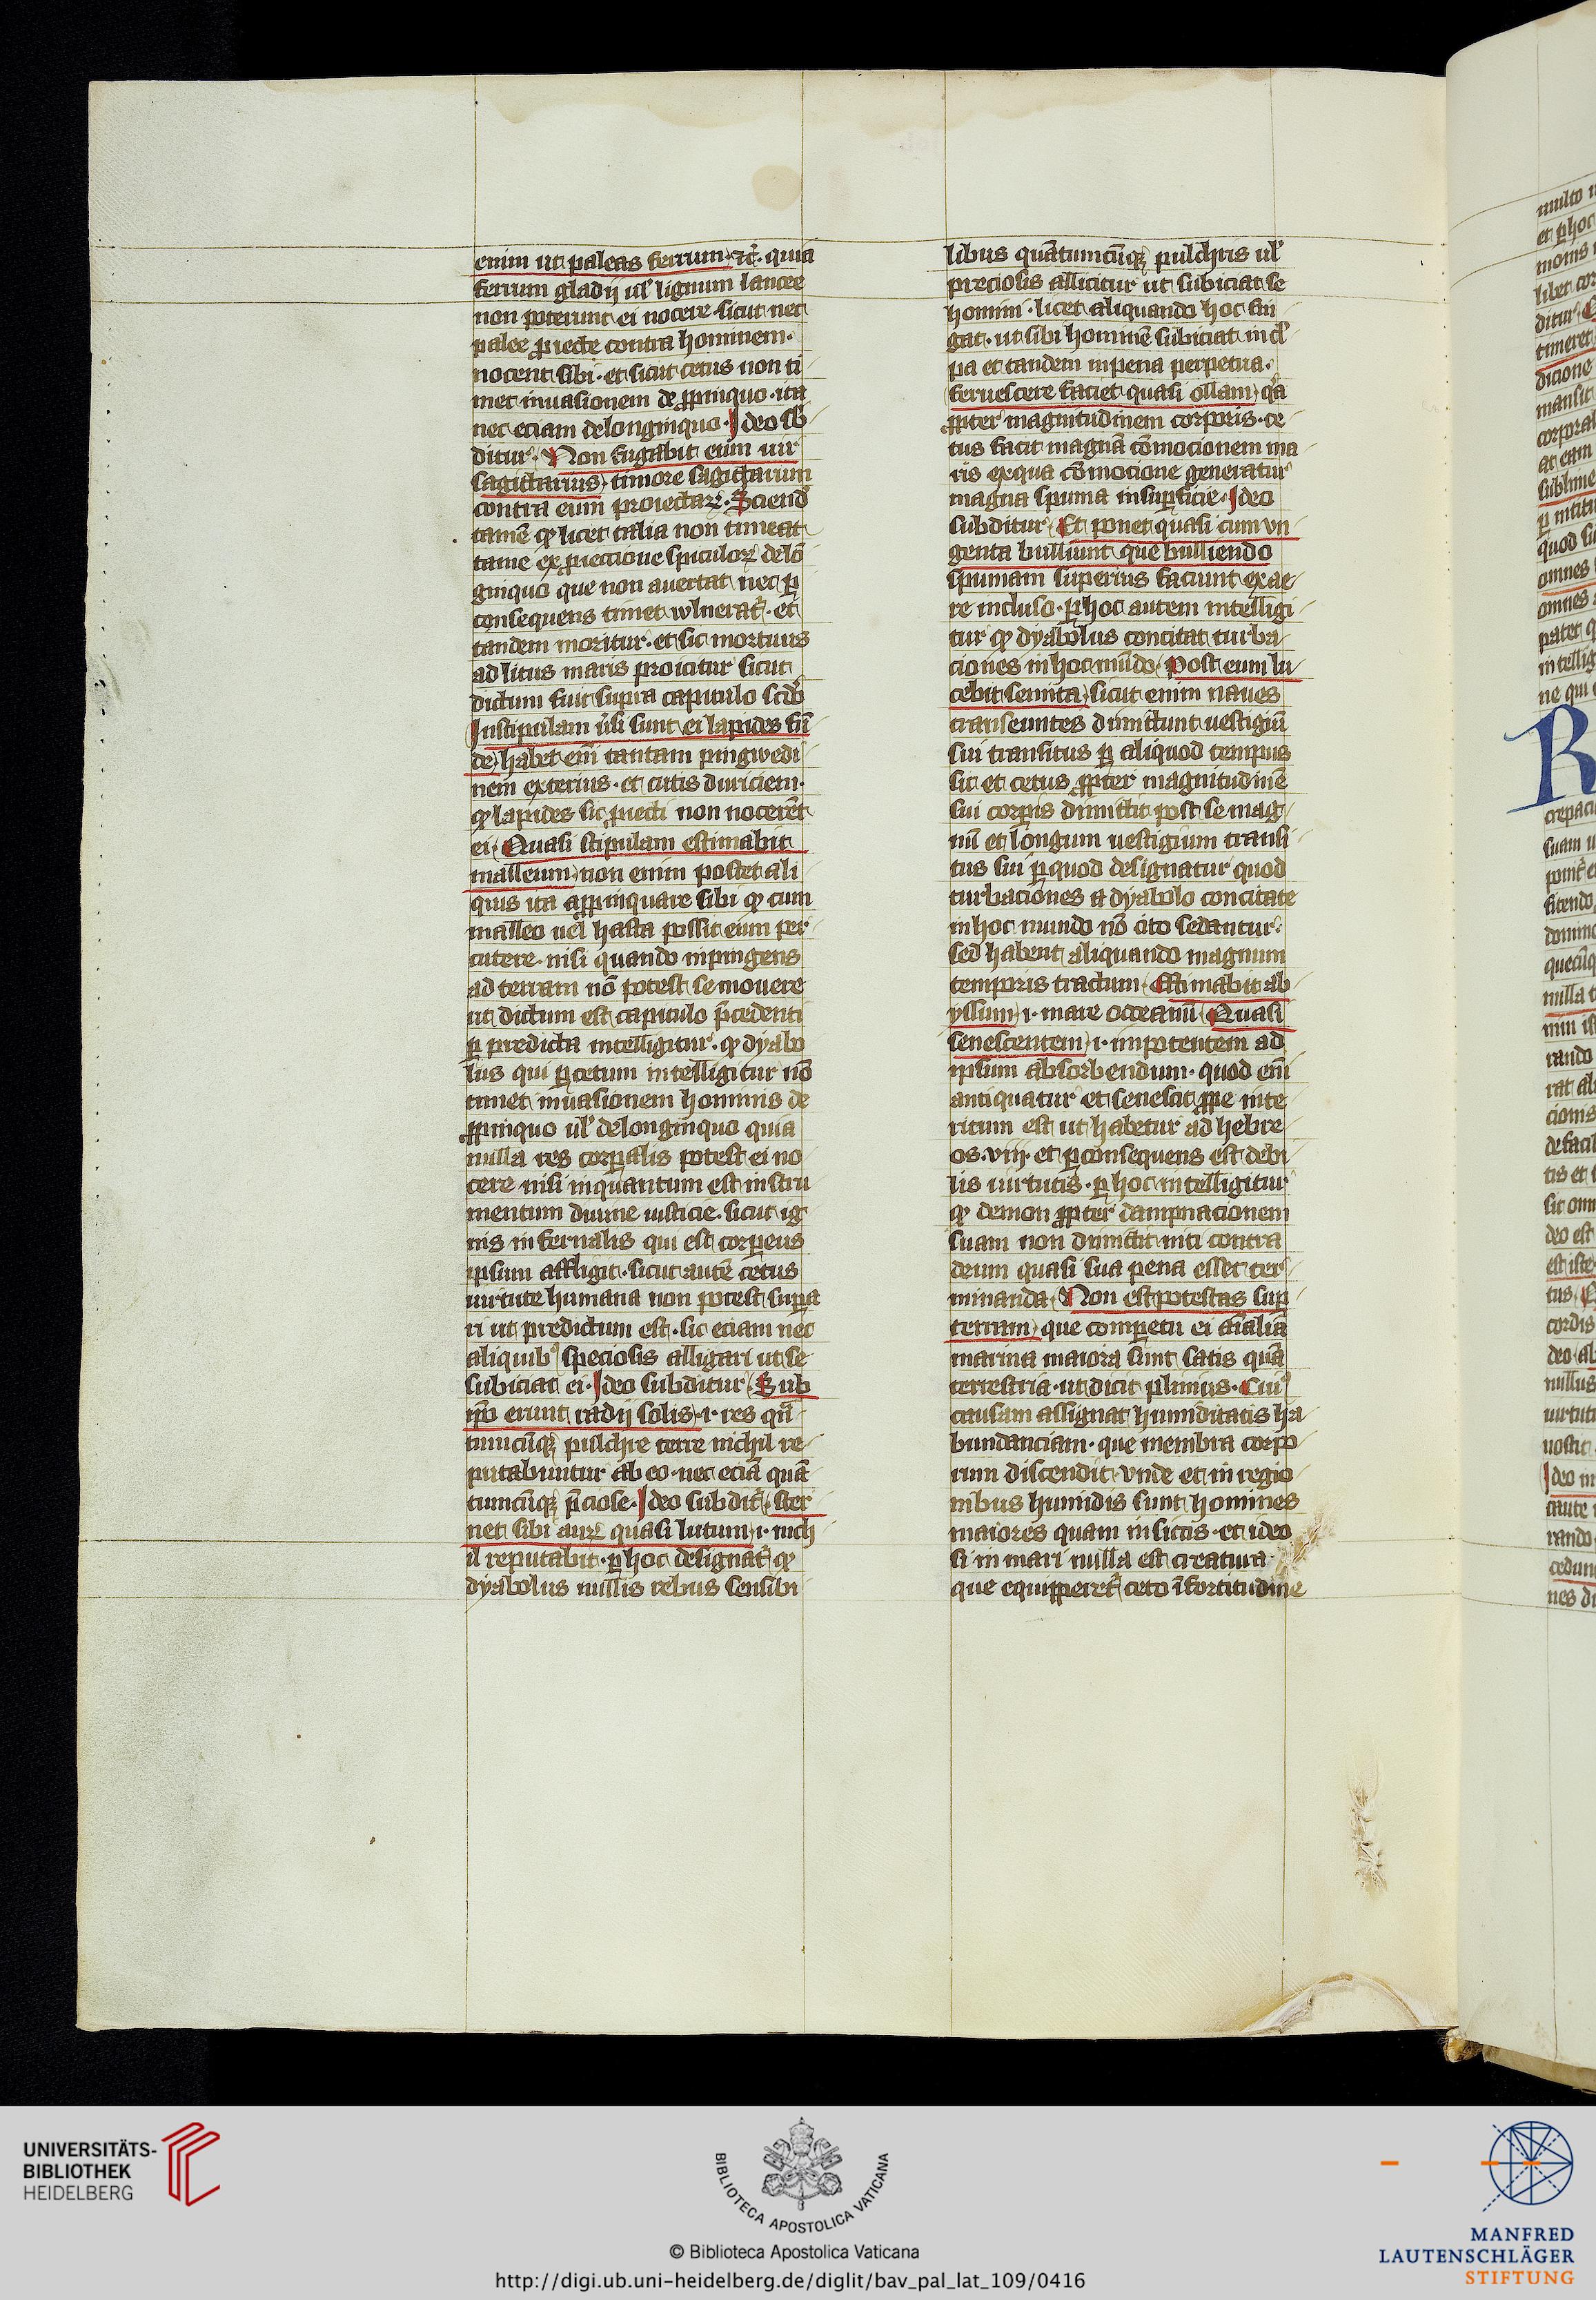 enim ut paleas ferrum ⁊c̄. quia
ferrum gladij ul̓ lignum lancee
non poterunt ei nocere sicut nec
palee ꝓiecte contra hominem.
nocent sibi. et sicut cetus non ti
met inuasionem de ꝓpinquo. ita
nec eciam delonginquo. Ideo sb̓
ditur. Non fugabit eum uir
sagittarius timore sagittarum
contra eum proiectaꝝ. Sciend̓
tamē ꝙ licet talia non timeat
tame ex ꝓieccione spiculoꝝ delō
ginquo que non auertat nec ꝑ
consequens timet wlnerat̓. et
tandem moritur. et sic mortuus
ad litus maris proicitur sicut
dictum fuit supra capitulo scd̓o
In stipulam ūsi sunt ei lapides fū
de habet em̄ tantam pingwedi
nem exterius. et cutis duriciem.
ꝙ lapides sic ꝓiecti non nocerēt
ei. Quasi stipulam estimabit
malleum non enim posset ali
quis ita aꝓpinquare sibi ꝙ cum
malleo uel hasta possit eum per
cutere. nisi quando inpingens
ad terram nō potest se mouere
ut dictum est capitulo p̄cedenti
ꝑ predicta intelligitur. ꝙ dyabo
lus qui ꝑ cetum intelligitur nō
timet inuasionem hominis de
ꝓpinquo ul̓ delonginquo quia
nulla res corꝑalis potest ei no
cere nisi inquantum est instru
mentum diuine iusticie. sicut ig
nis infernalis qui est corꝑeus
ipsum affligit. sicut autē cetus
uirtute humana non potest suꝑa
ri ut predictum est. sic eciam nec
aliquib᷒ speciosis alligari ut se
subiciat ei. Ideo subditur. Sub
ip̄o erunt radij solis. i. res quā
tumcūqꝫ pulchre terre nichil re
putabuntur ab eo. nec eciā quā
tumcūqꝫ p̄ciose. Ideo subdit̓ ster
net sibi auꝝ quasi lutum i. nich
il reputabit. ꝑ hoc designat̓ ꝙ
dyabolus nullis rebus sensibi
libus quātumcūqꝫ pulchris ul̓
preciosis allicitur ut subiciat se
homini. licet aliquando hoc fin
gat. ut sibi hominē subiciat in cl̓
pa et tandem in pena perpetua.
feruescere faciet quasi ollam q̓a
ꝓpter magnitudinem corporis. ce
tus facit magnā cōmocionem ma
ris ex qua cōmocione generatur
magna spuma in suꝑficie. Ideo
subditur. Et ponet quasi cum vn
genta bulliunt que bulliendo
spumam superius faciunt ex ae
re incluso. ꝑ hoc autem intelligi
tur ꝙ dyabolus concitat turba
ciones in hoc mūdo. Post eum lu
cebit semita sicut enim naues
transeuntes dimittunt uestigiū
sui transitus ꝑ aliquod tempus
sic et cetus ꝓpter magnitudinē
sui corꝑis dimittit post se mag
nū et longum uestigium transi
tus sui ꝑ quod designatur quod
turbaciones a dyabolo concitate
in hoc mundo nō cito sedantur.
sed habent aliquando magnum
temporis tractum. Estimabit ab
yssum i. mare occeanū. Quasi
senescentem i. impotentem ad
ipsum absorbendum. quod em̄
antiquatur et senescit ꝓpe inte
ritum est ut habetur ad hebre
os. viij. et ꝑ consequens est debi
lis uirtutis. ꝑ hoc intelligitur
ꝙ demon ꝓpter dampnacionem
suam non dimittit niti contra
deum quasi sua pena esset ter
minanda. Non est potestas suꝑ
terram que comꝑetu ei aīalia
marina maiora sunt satis quā
terrestria. ut dicit plinius. Cui᷒
causam assignat humiditatis ha
bundanciam. que membra corpo
rum discendit. vnde et in regio
nibus humidis sunt homines
maiores quam in siccis. et ideo
si in mari nulla est creatura
que equipꝑeret̓ ceto ī fortitudine
UNIVERSITÄTS-
BIBLIOTHEK
HEIDELBERG
BIBLIOTECA APOSTOLICA VATICANA
© Biblioteca Apostolica Vaticana
http://digi.ub.uni-heidelberg.de/diglit/bav_pal_lat_109/0416
MANFRED
LAUTENSCHLÄGER
STIFTUNG